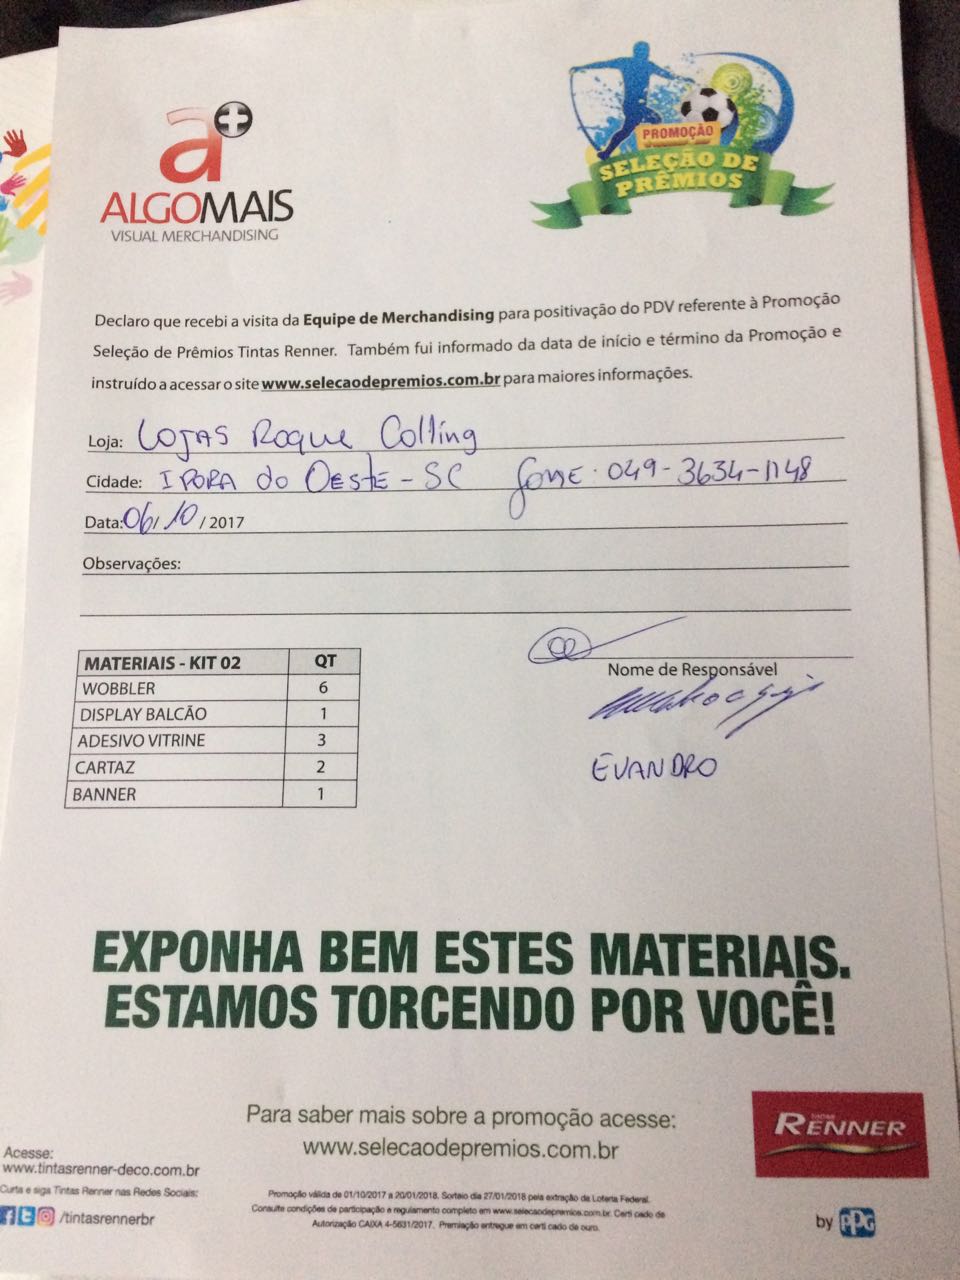 a+
ALGOMAIS
VISUAL MERCHANDISING
PROMOÇÃO
SELEÇÃO DE
PRÊMIOS
Declaro que recebi a visita da Equipe de Merchandising para positivação do PDV referente à Promoção
Seleção de Prêmios Tintas Renner. Também fui informado da data de início e término da Promoção e
instruído a acessar o site www.selecaodepremios.com.br para maiores informações.
Loja: LOJAS Roque Colling
Cidade: IPORA do OESTE - SC fone: 049-3634-1148
Data: 06/10/2017
Observações:
MATERIAIS - KIT 02 QT
WOBBLER 6
DISPLAY BALCÃO 1
ADESIVO VITRINE 3
CARTAZ 2
BANNER 1
Nome de Responsável
EVANDRO
EXPONHA BEM ESTES MATERIAIS.
ESTAMOS TORCENDO POR VOCÊ!
Para saber mais sobre a promoção acesse:
www.selecaodepremios.com.br
Acesse:
www.tintasrenner-deco.com.br
Curta e siga Tintas Renner nas Redes Sociais:
/tintasrennerbr
Promoção válida de 01/10/2017 a 20/01/2018. Sorteio dia 27/01/2018 pela extração da Loteria Federal.
Consulte condições de participação e regulamento completo em www.selecaodepremios.com.br. Certi cado de
Autorização CAIXA 4-5631/2017. Premiação entregue em certi cado de ouro.
TINTAS
RENNER
by PPG